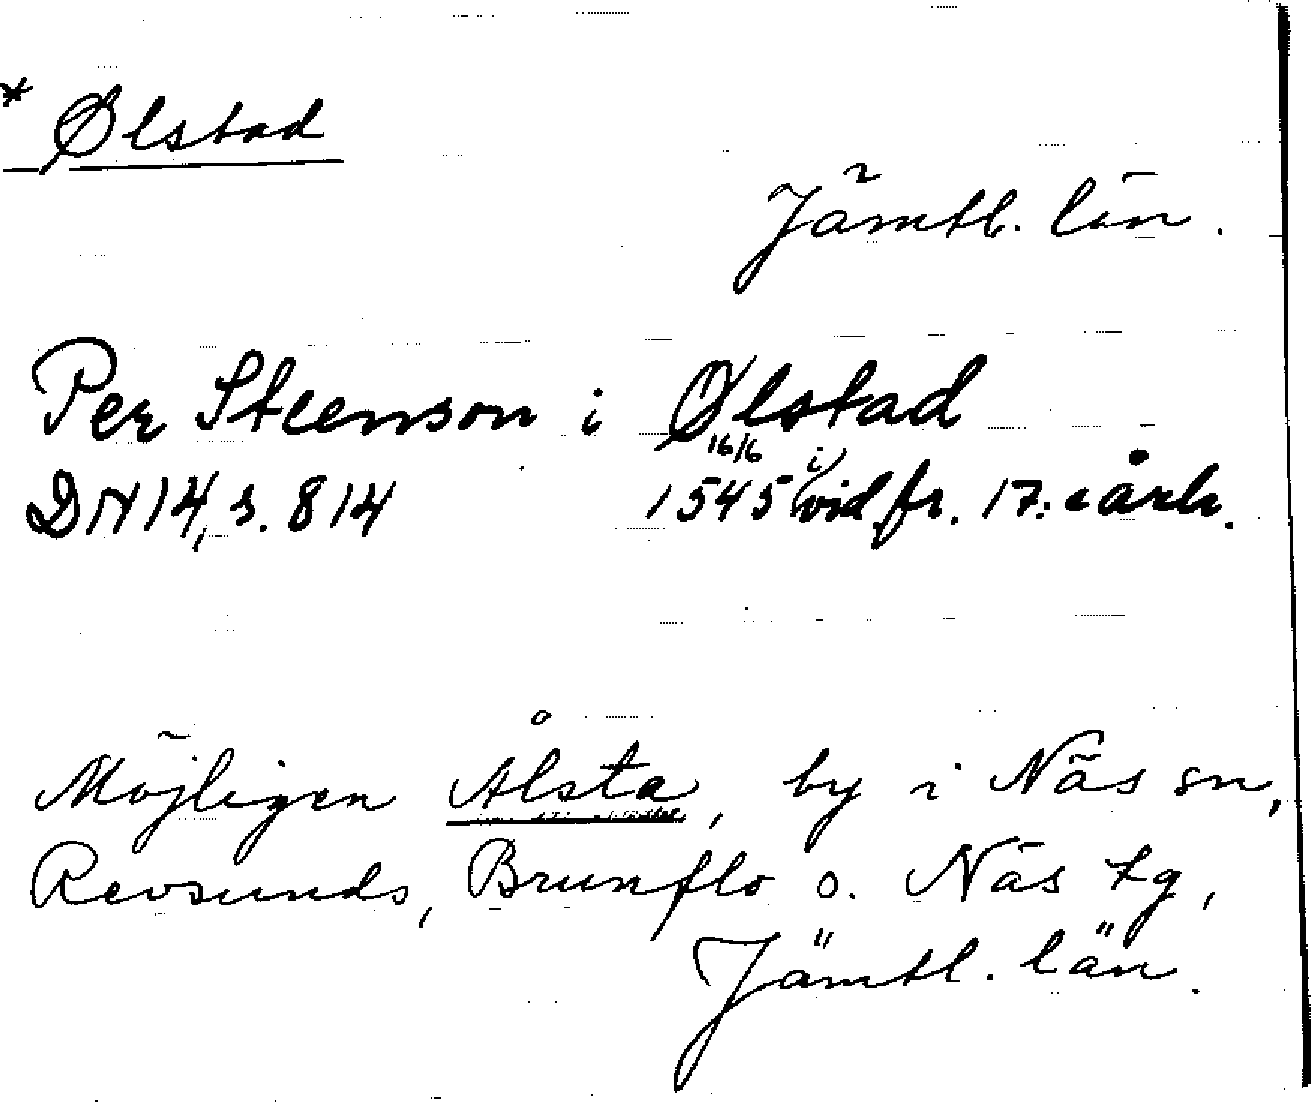 * Ølstad
Jämtl. län.
Per Steenson i Ølstad
DN 14, s. 814 1545 16/6 i vid fr. 17:e årh.
Möjligen Ålsta, by i Näs sn,
Revsunds, Brunflo o. Näs tg,
Jämtl. län.